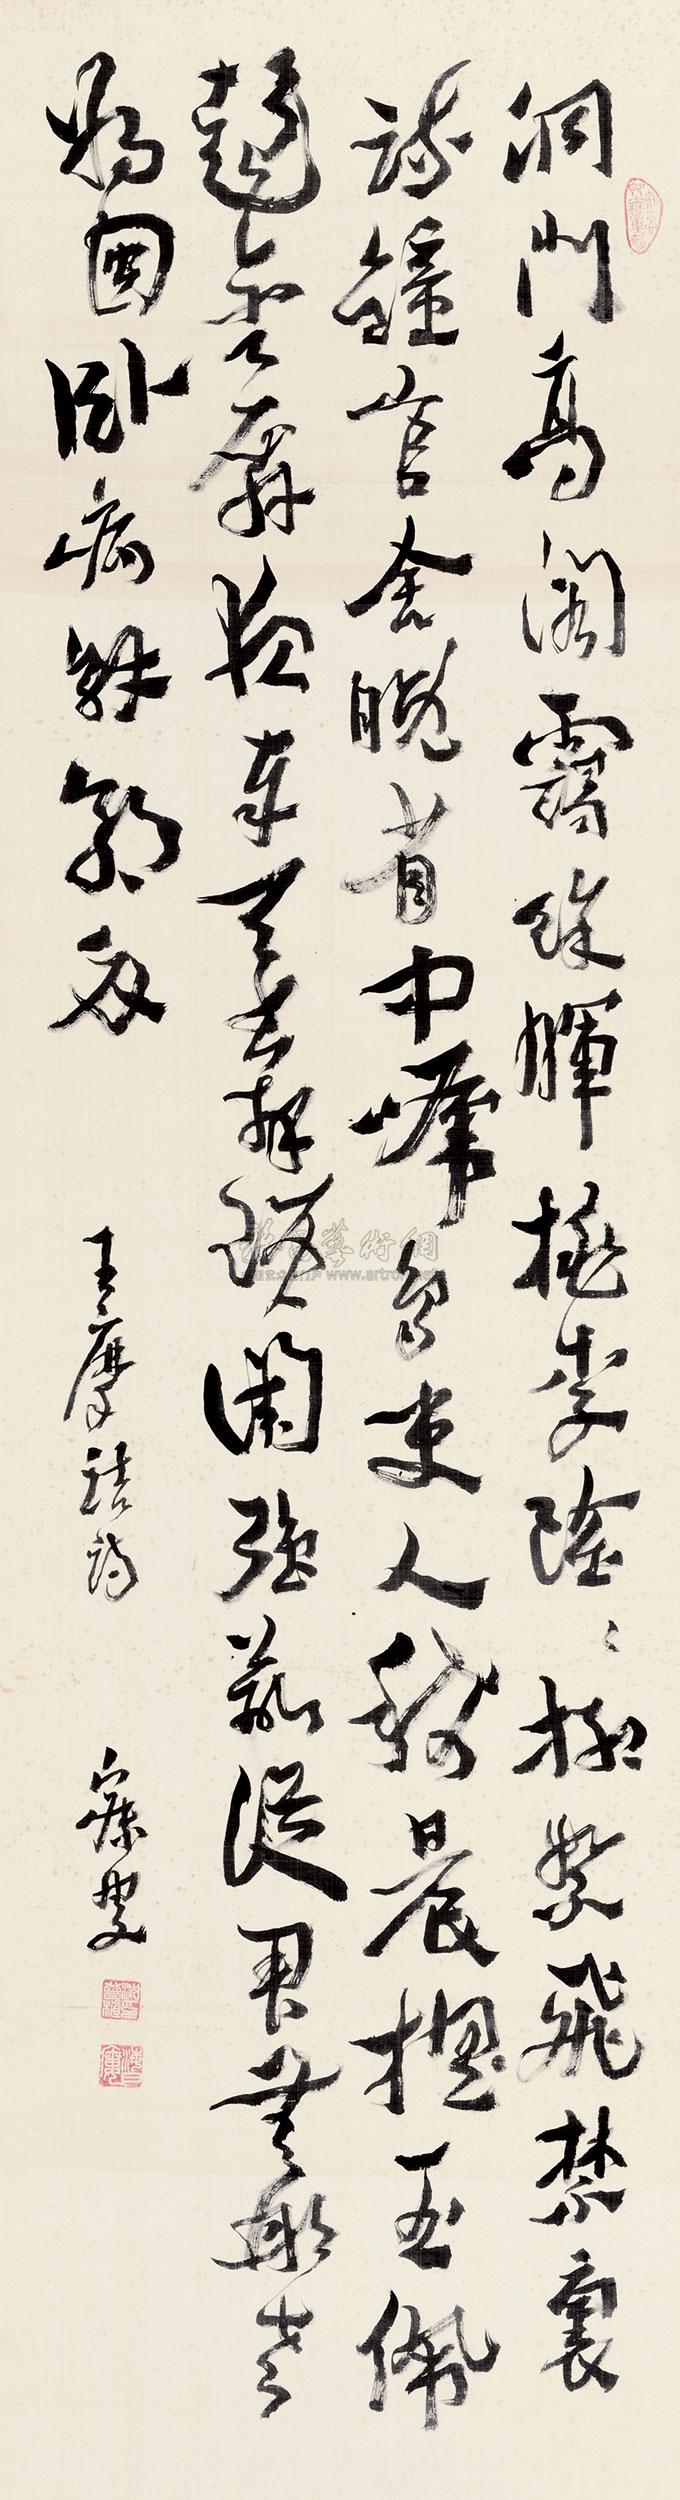 洞門高閣靄餘暉桃李陰〻柳絮飛禁裏
疎鐘官舍晚省中啼鳥吏人稀晨搖玉佩
趨金殿夕奉天書拜瑣闈強欲從君無那老
將因臥病解朝衣
王摩詰詩
寐叟
藝術網